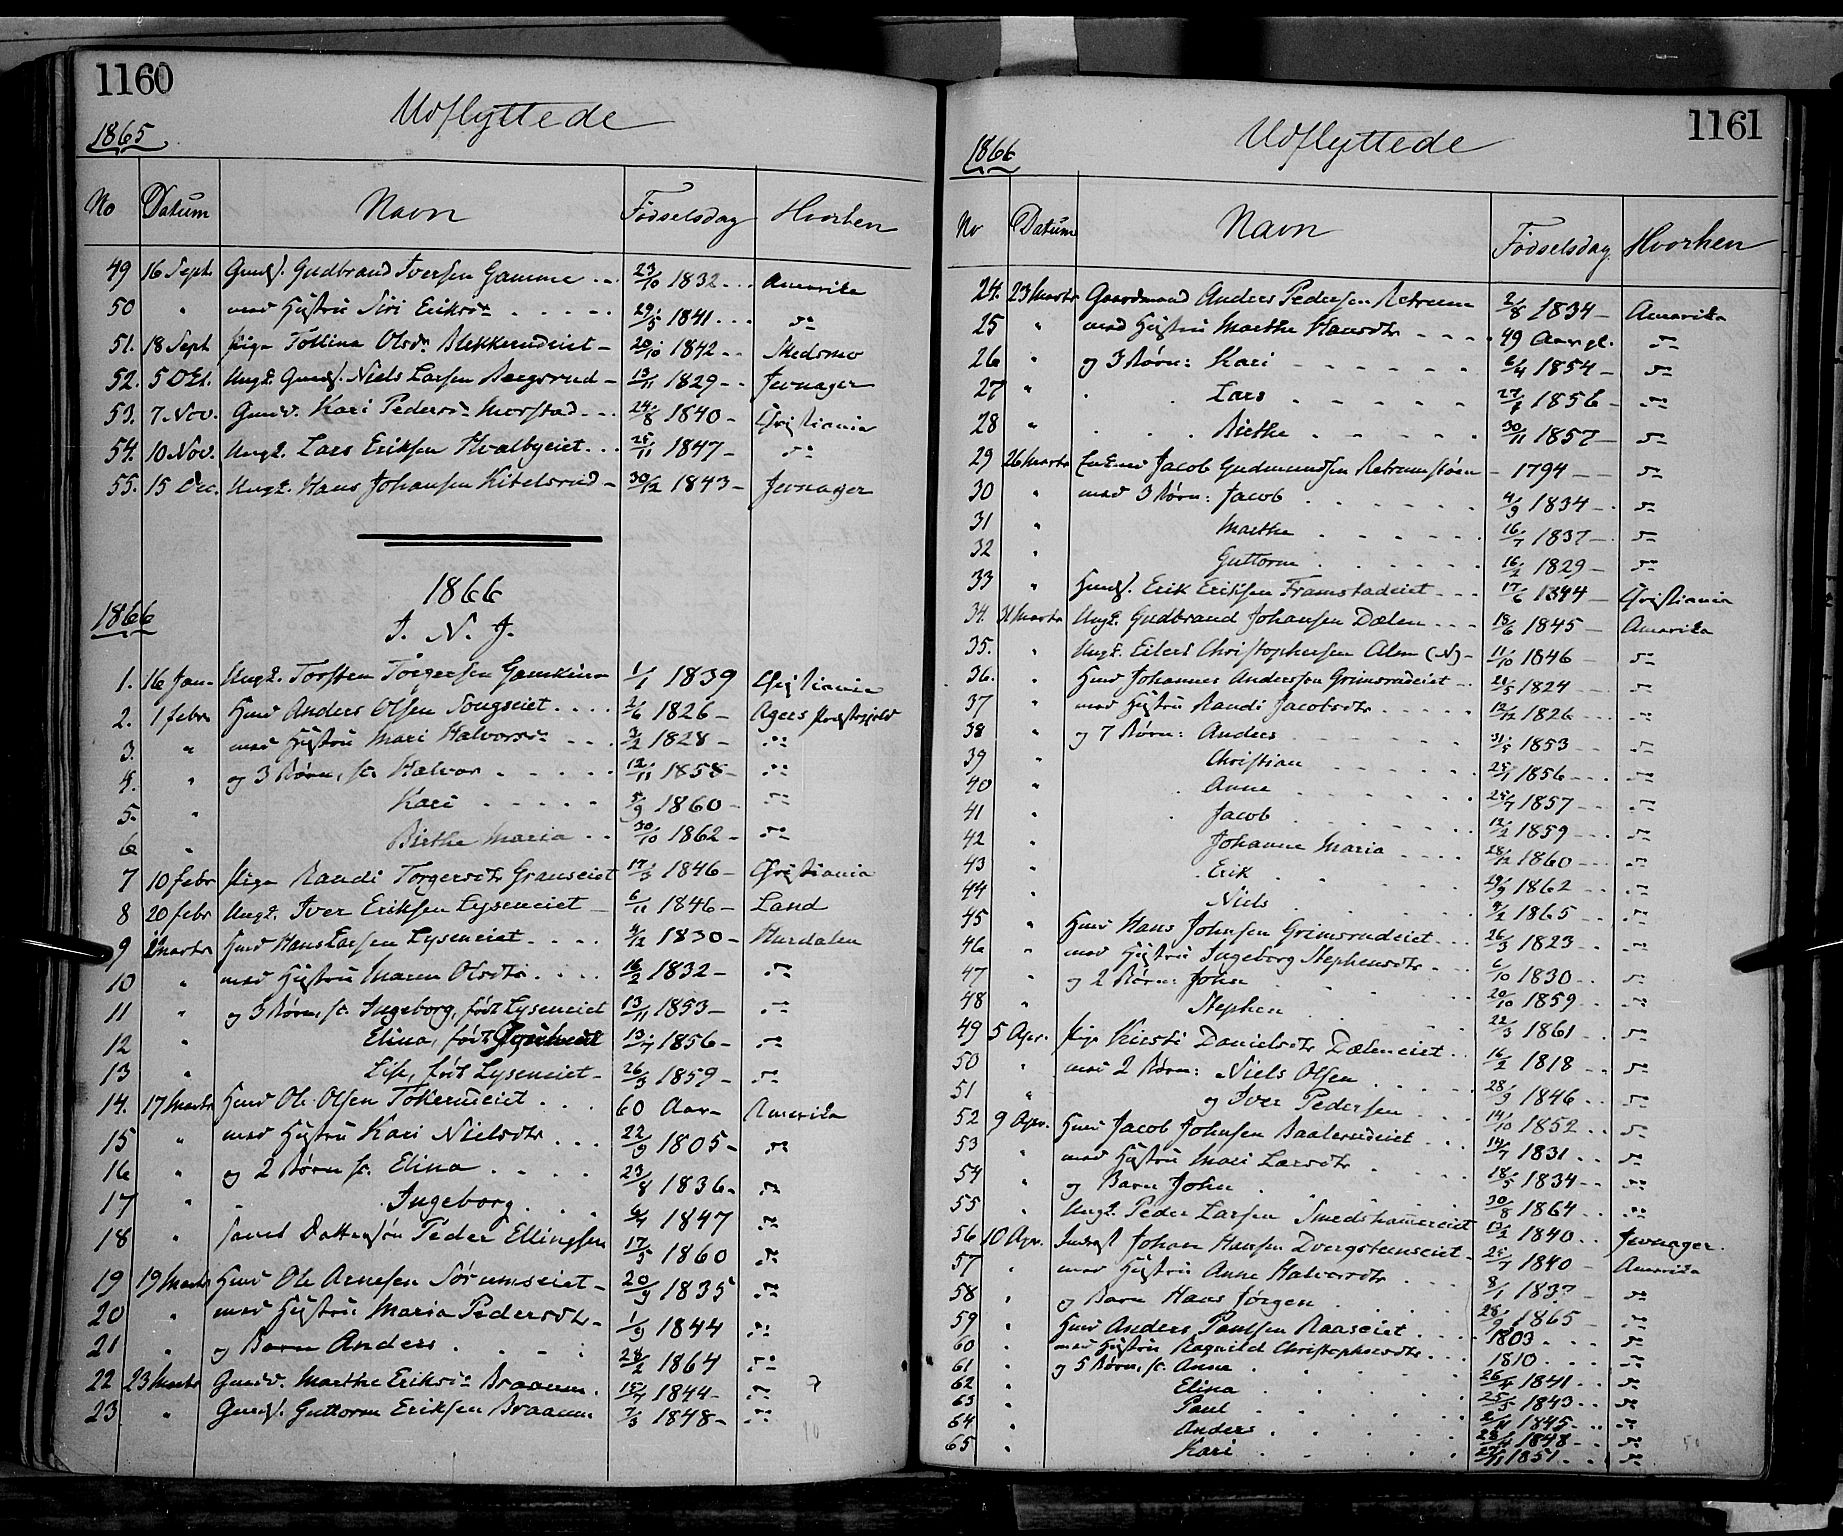 1160
Udflyttede
1865
No Datum Navn Fødselsdag Hvorhen
49 16 Sept Gmds. Gudbrand Iversen Gamme 23/10 1832 Amerika
50 " med Hustru Siri Eriksdr 29/5 1841 do
51. 18 Sept Pige Tollina Olsdr Blekkerudeiet 20/10 1842 Skedsmo
52. 5 Okt. Ungk. Gmds. Niels Larsen Bergsrud 13/11 1829 Jevnager
53. 7 Nov. Gmdd. Kari Pedersdr Morstad 24/8 1840 Christiania
54. 10 Nov. Ungk. Lars Eriksen Hvalbyeiet 25/11 1847 do
55. 15 Dec. Ungk. Hans Johansen Kittelsrud 30/12 1843 Jevnager
1866
1866
I. N. J.
1. 16 Jan Ungk. Torsten Torgersen Gamkinn 1/1 1839 Christiania
2. 1 febr Huusmd Anders Olsen Songseiet 2/6 1826 Agers Præstegjeld
3. " med Hustru Mari Halvorsdr 3/2 1828 do
4. " og 3 Børn, s: Halvor 12/11 1858 do
5. " Kari 5/9 1860 do
6 " Birthe Maria 30/10 1862 do
7 10 febr Pige Randi Torgersdtr Granseiet 17/3 1846 Christiania
8 20 febr Ungk. Iver Eriksen Lyseneiet 6/11 1846 Land
9 2 Marts Huusmd Hans Larsen Lyseneiet 4/12 1830 Hurdalen
10 " med Hustru Maren Olsdtr 16/2 1832 do
11 " og 3 Børn, s: Ingeborg, født Lyseneiet 13/11 1853 do
12 " Elina, født 13/7 1856 do
13 " Lise, født Lyseneiet 26/3 1859 do
14. 17 Marts Huusmd Ole Olsen Tokerudeiet 60 Aar Amerika
15 " med Hustru Kari Nielsdtr 22/9 1805 do
16 " og 2 Børn s: Elina 23/8 1836 do
17 " Ingeborg 6/4 1847 do
18 " samt Dattersøn Peder Ellingsen 17/5 1860 do
19 19 Marts Huusmd Ole Arnesen Sørumseiet 20/9 1835 do
20 " med Hustru Maria Pedersdtr 1/9 1844 do
21 " og Barn Anders 28/2 1864 do
22 23 Marts Gmdd. Marthe Eriksdr Braaum 15/7 1844 do
23 " Gmds. Guttorm Eriksen Braaum 7/3 1848 do
1161
Udflyttede
1866
No Datum Navn Fødselsdag Hvorhen
24. 23 Marts Gaardmand Anders Pedersen Retrum 2/8 1834 Amerika
25 " med Hustru Marthe Hansdtr 49 Aar gl. do
26 " og 3 Børn: Kari 2/4 1854 do
27 " Lars 27/8 1856 do
28 " Birthe 30/11 1857 do
29 26 Marts Enkem Jacob Gudmundsen Retrumstøen 1794 do
30 " med 3 Børn: Jacob 4/9 1834 do
31 " Marthe 16/7 1837 do
32 " Guttorm 16/2 1829 do
33 " Huuss. Erik Eriksen Framstadeiet 17/6 1844 Christiania
34. 31 Marts Ungk. Gudbrand Johansen Dælen 18/6 1845 Amerika
35. Ungk. Eilert Christophersen Alm (N) 11/10 1846 do
36. " Huusmd Johannes Anderssen Grimsrudeiet 21/5 1824 do
37 " med Hustru Randi Jacobsdtr 12/12 1826 do
38 " og 7 Børn: Anders 31/5 1853 do
39 " Christian 25/1 1856 do
40 " Anne 25/7 1857 do
41 " Jacob 12/2 1859 do
42 " Johanne Maria 28/12 1860 do
43 " Erik 29/9 1862 do
44 " Niels 4/2 1865 do
45 " Huusmd Hans Johnsen Grimsrudeiet 26/3 1823 do
46 " med Hustru Ingeborg Stephensdtr 6/10 1830 do
47 " og 2 Børn: John 20/10 1859 do
48 " Stephen 22/3 1861 do
49 5 Apr. Pige Kirsti Danielsdtr Dæleneiet 16/2 1818 do
50 " med 2 Børn: Niels Olsen 28/9 1846 do
51 " og Iver Pedersen 14/10 1852 do
52 9 Apr. Huusmd Jacob Johnsen Baalerudeiet 14/7 1831 do
53 " med Hustru Mari Larsdtr 18/5 1834 do
54 " og Barn John 30/8 1864 do
55 " Ungk. Peder Larsen Smedshammereiet 13/2 1840 Jevnager
56 10 Apr. Inderst Johan Hansen Dvergstenseiet 25/7 1840 Amerika
57 " med Hustru Anne Halvorsdtr 8/1 1837 do
58 " og Barn Hans Jørgen 28/9 1865 do
59 " Huusmd Anders Paulsen Raaseiet 1803 do
60 " med Hustru Ragnild Christophersdtr 1810 do
61 " og 5 Børn, s: Anna 26/4 1841 do
62 " Elina 25/5 1843 do
63 " Paul 2/11 1845 do
64 " Anders 1848 do
65 " Kari 1851 do